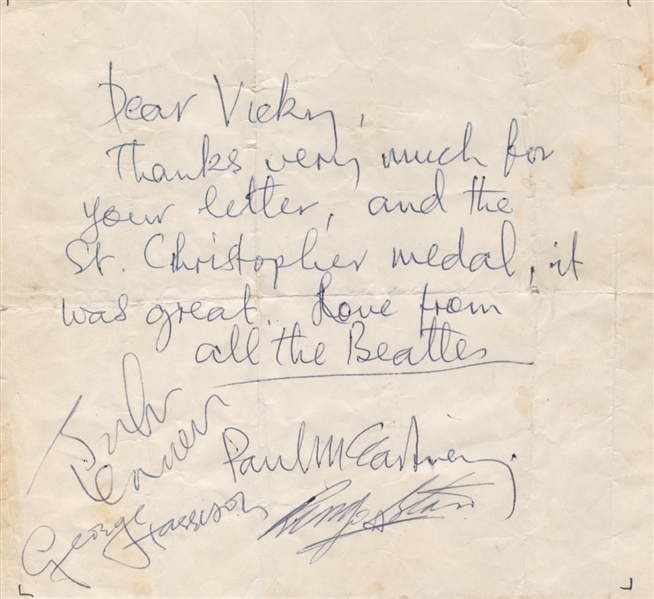 Dear Vicky,
Thanks very much for
your letter, and the
St. Christopher medal, it
was great. Love from
all the Beatles
John Lennon
Paul McCartney.
George Harrison
Ringo Starr